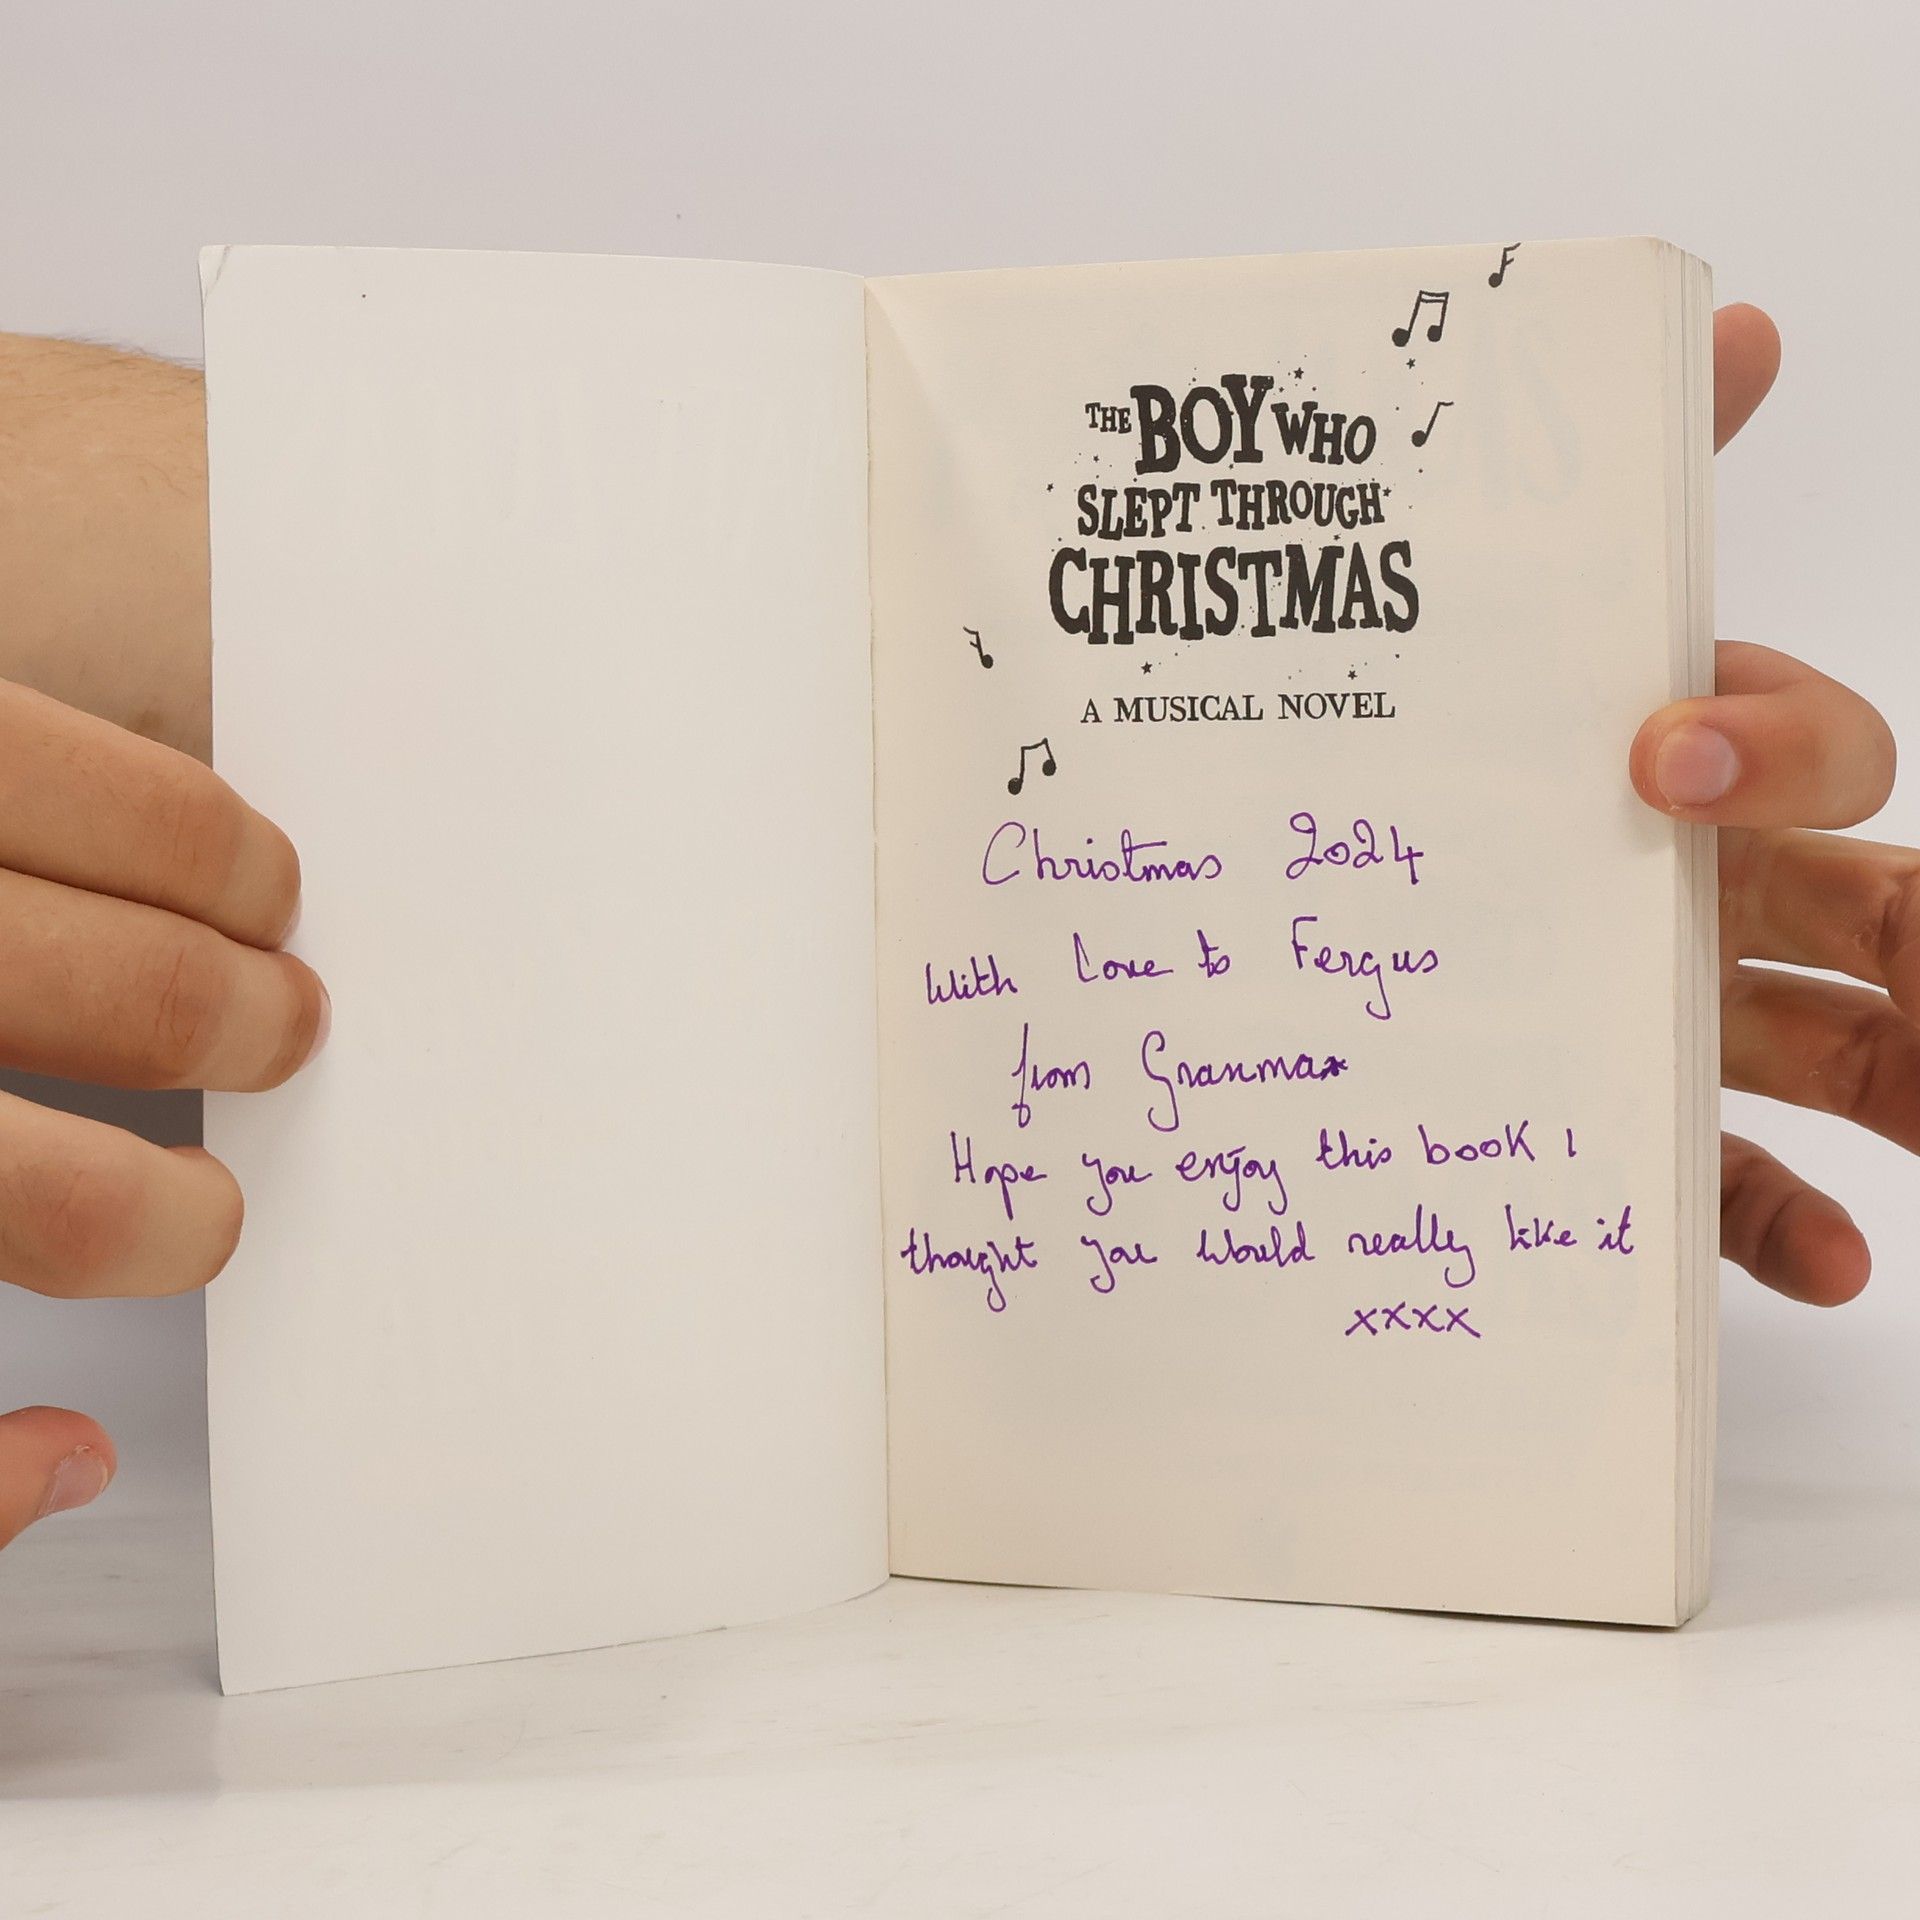 THE BOY WHO
SLEPT THROUGH
CHRISTMAS
A MUSICAL NOVEL
Christmas 2024
With Love to Fergus
from Granma
Hope you enjoy this book I
thought you would really like it
xxxx